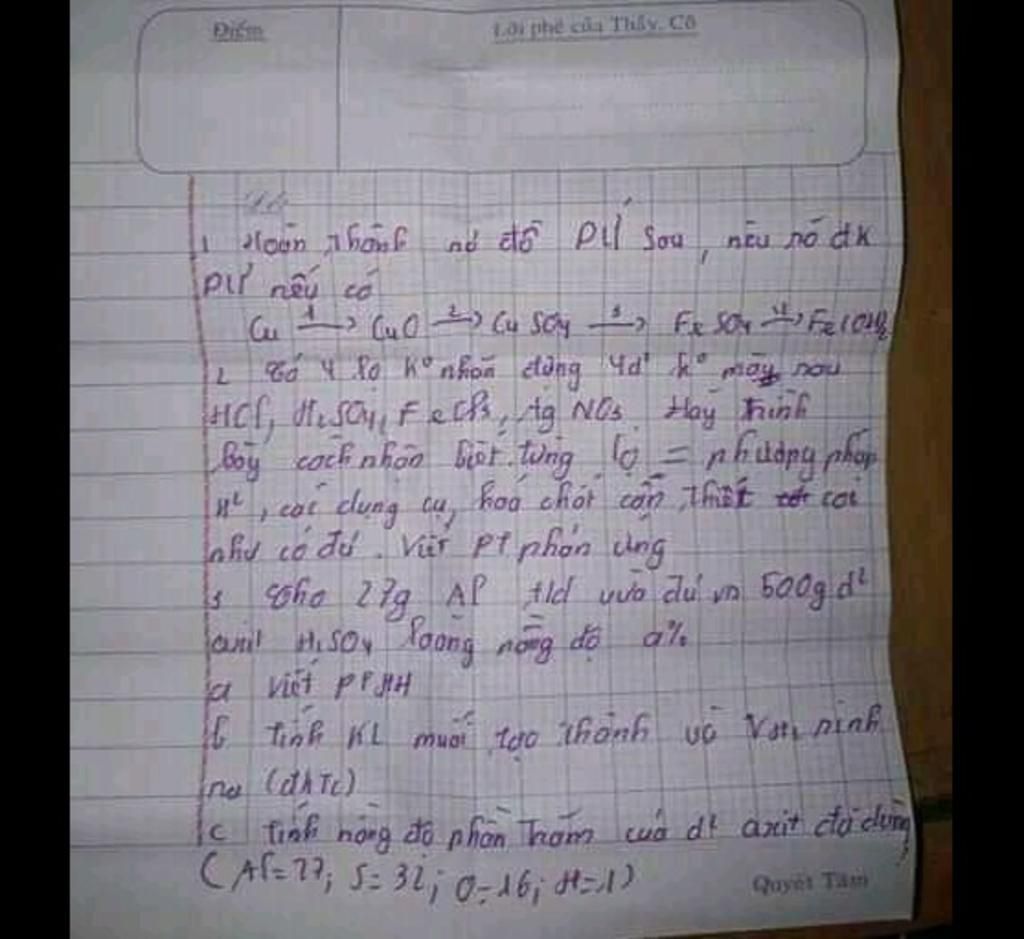 Điểm
Lời phê của Thầy, Cô
1 Hoàn thành sơ đồ PƯ sau, nêu rõ đk
PƯ nếu có
Cu 1→ CuO 2→ CuSO4 3→ FeSO4 4→ Fe(OH)2
2 Có 4 lọ ko nhãn đựng 4 d2 ko màu sau
HCl, H2SO4, FeCl3, AgNO3 Hãy trình
bày cách nhận biết từng lọ = phương pháp
H2, các dụng cụ, hoá chất cần thiết coi
như có đủ. Viết PT phản ứng
3 Cho 27g Al t/d vừa đủ vs 500g d2
axit H2SO4 loãng nồng độ a%
a Viết PTHH
b tính KL muối tạo thành và VH2 sinh
ra (đktc)
c tính nồng độ phần trăm của d2 axit đã dùng
(Al=27; S=32; O=16; H=1)
Quyết Tâm